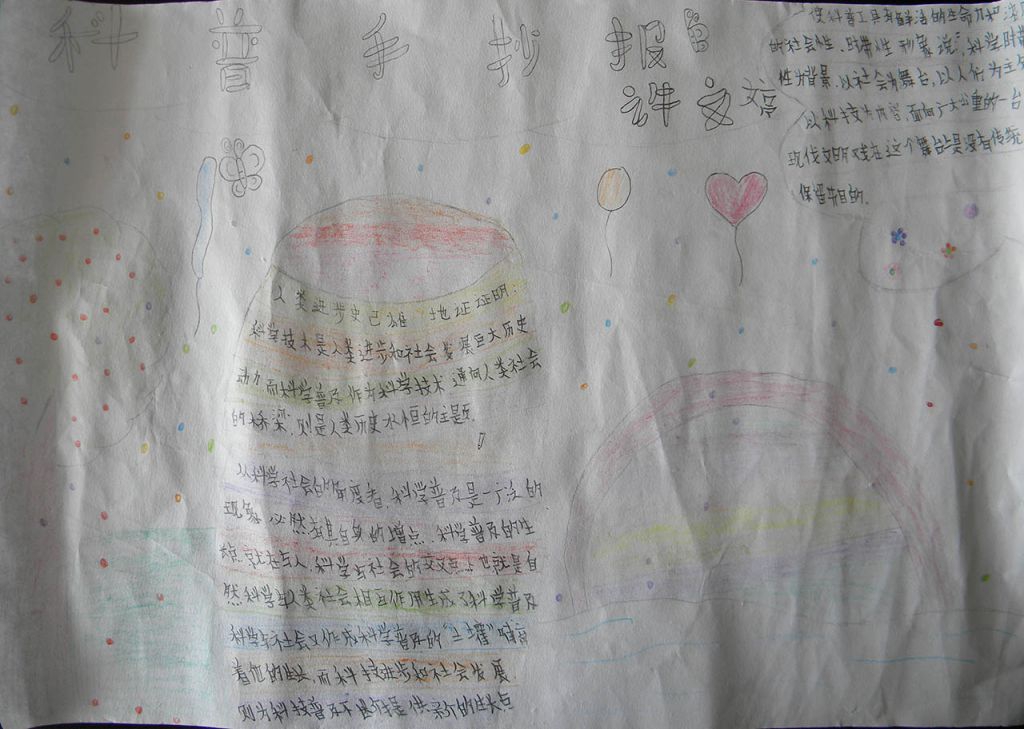 科普手抄报
许文
使科普工具有鲜活的生命力和
的社会性、时带性 形象说"，科学时
性为背景．以社会为舞台，以人们为主
以科技为内容，面向广大公重的一台
现代文明戏在这个舞台上是没有传统
保留节目的．
人类进步史已雄 地证证明：
科学技术是人类进步和社会发展巨大历史
动力 而科学普及作为科学技术 通向人类社会
的桥梁．则是人类历史永恒的主题．
以科学社会的角度看．科学普及是一广泛的
现象 必然有其自身的增点．科学普及的生
就在与人．科学与社会的交叉点上也就是自
然科学与人类社会相互作用生成了科学普及
科学与社会又作成科学普及的"土壤"
着他的生长．而科技进步和社会发展．
则为科技普及不断提供新的生长点